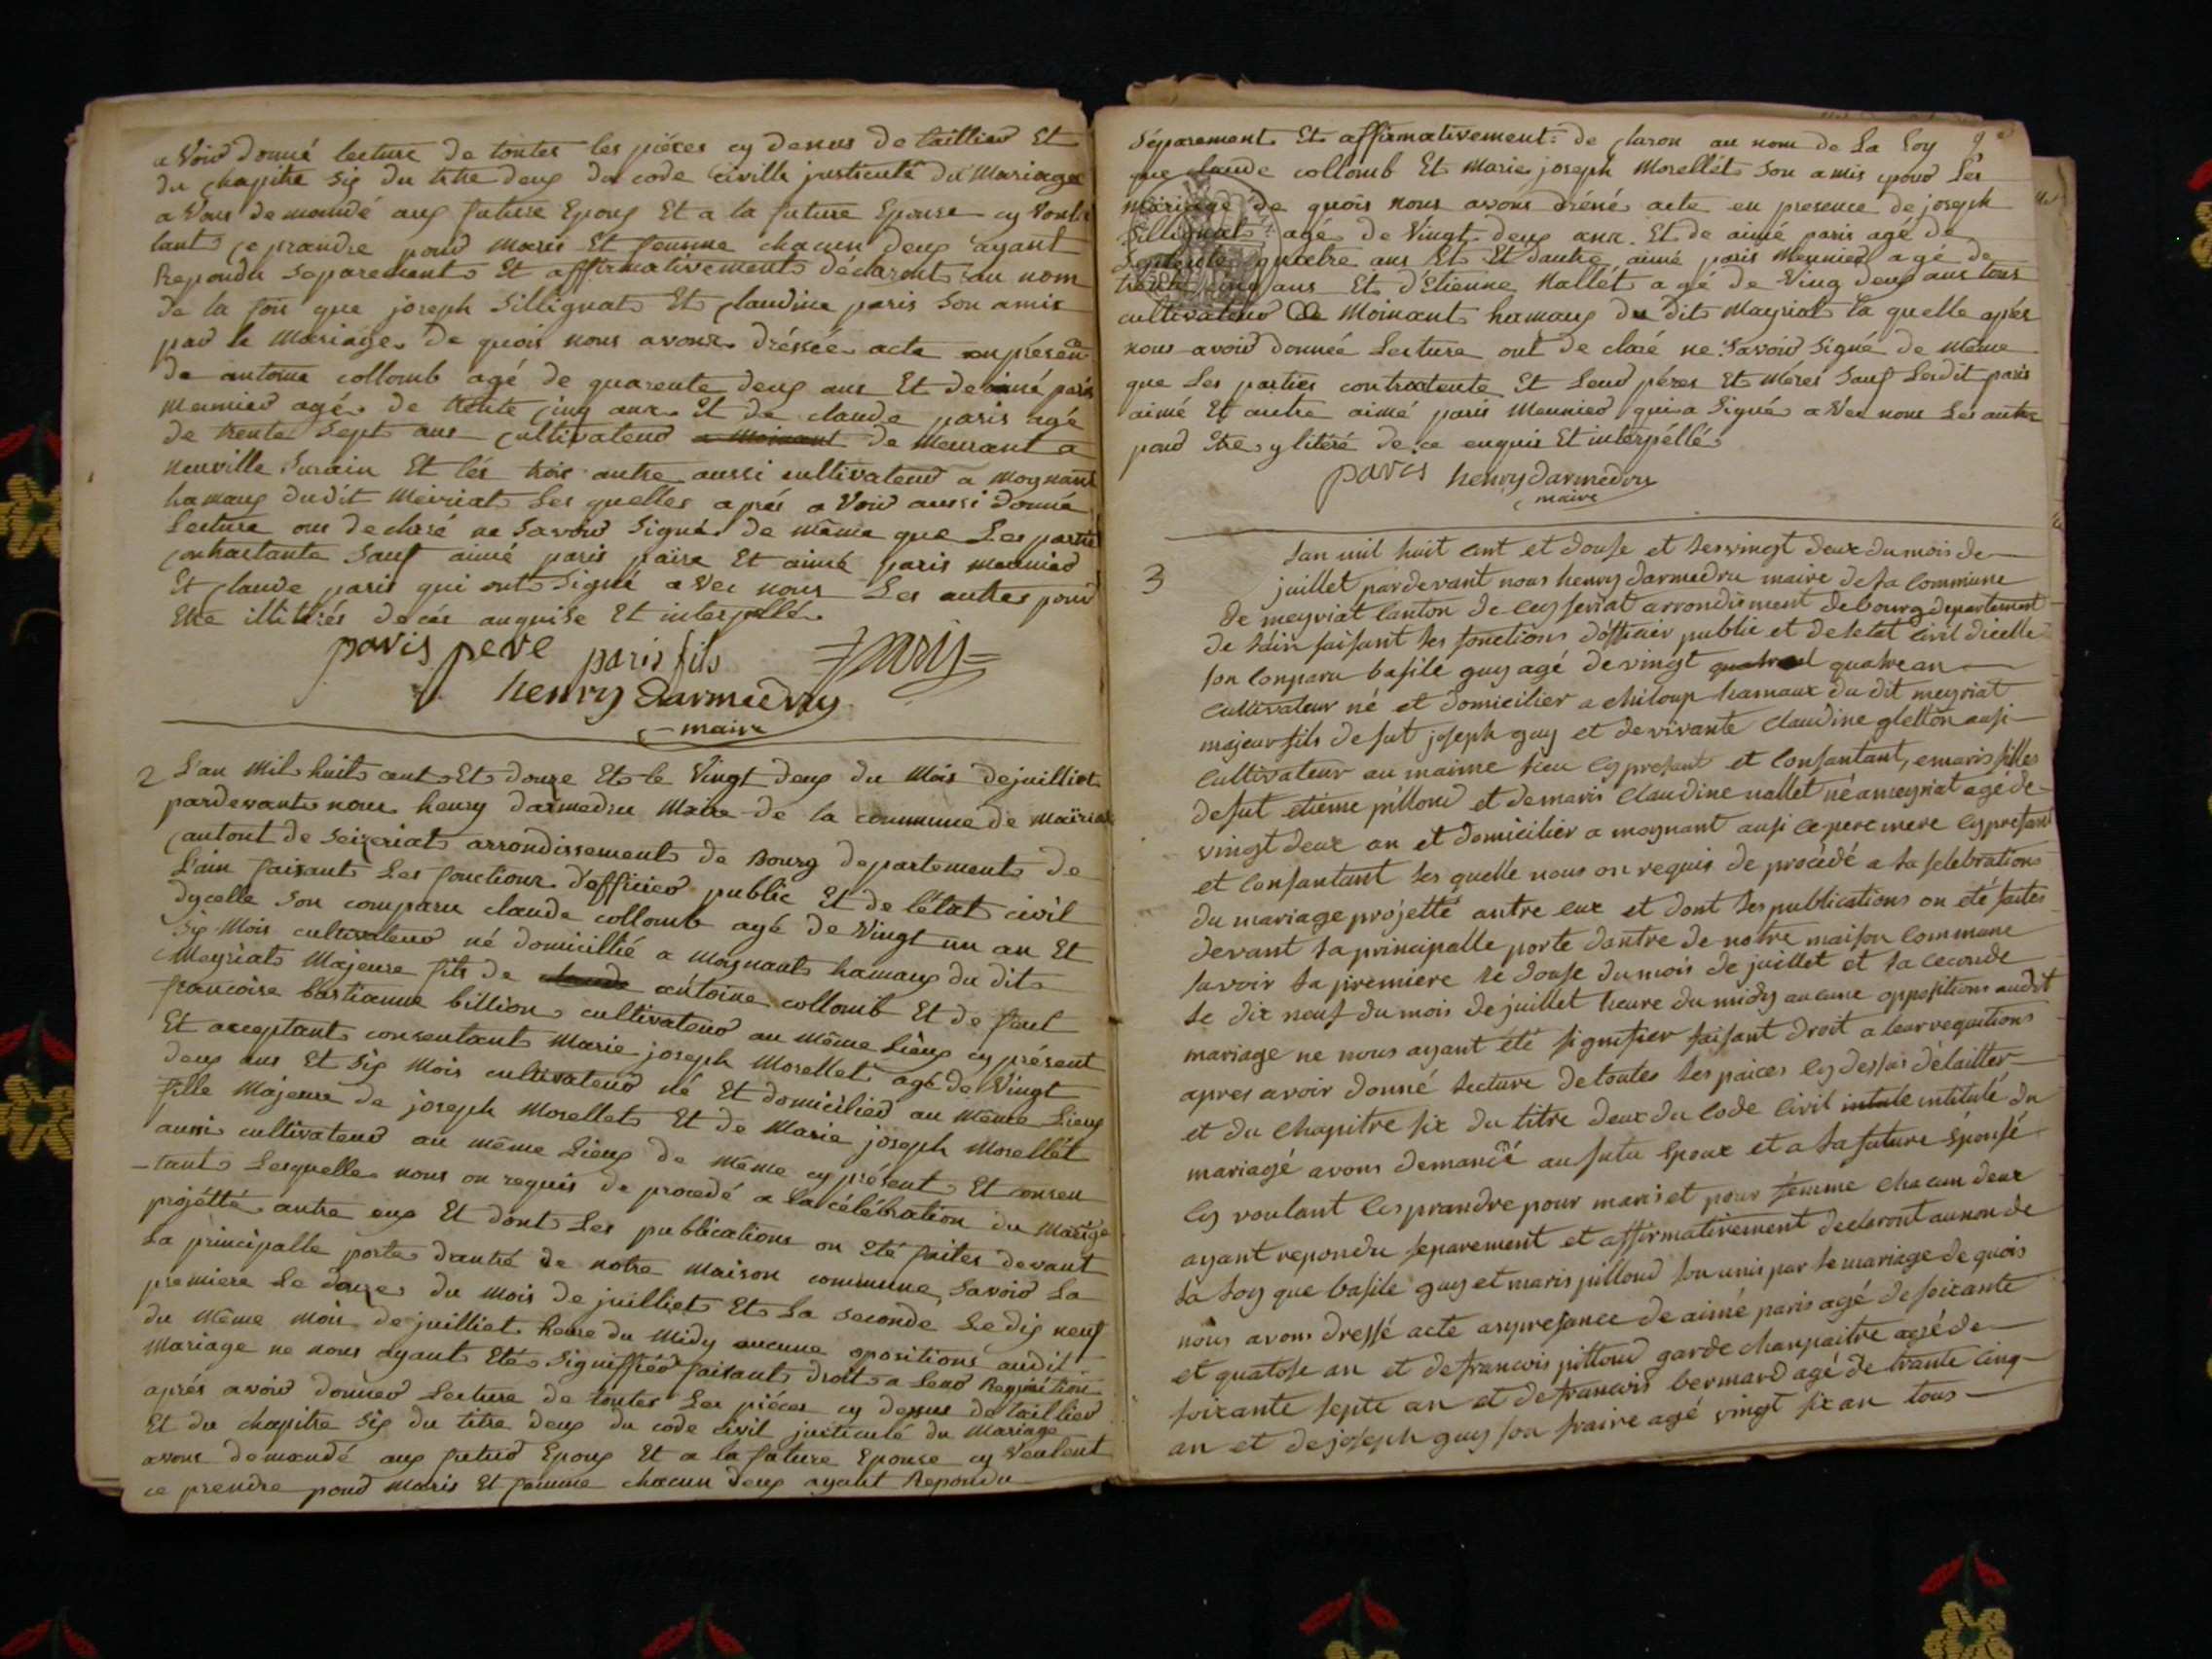 a Voir donné lecture de toutes les piéces cy desus de taillier Et
du chapitre Six du titre deux du code civille justiculé du Mariage
a Vons demandé aux future Epoux Et a la future Epouse cy Voul
lant ce prandre pour Maris Et femme chacun deux ayant
Repondu Separement Et affirmativement déclaront au nom
de la foi que joseph Sillignat Et Claudine paris Son amis
par le Mariage de quois nous avons dréssée acte enprésen
de antoine collomb agé de quarente deux ans Et de aimé paris
Meunier agé de trente Cinq ans Et de claude paris agé
de trente Sept ans Cultivateur de Meurant a
neuville Surain Et lés trois autre aussi cultivateur a Mognant
hamaux dudit Meiriat Les quelles aprés a Voir aussi donné
Lecture ons decleré ne Savoir Signé de même que Les partie
Contractante Sauf aimé paris paire Et aimé paris meunier
Et Claude paris qui ont Signé a Vec nous Les autres pour
Etre illitérés de cés anquise Et interpellé
paris pere paris fils paris
henry darmedru
maire
2 L'an Mil huit cent Et douze Et le Vingt deux du Mois dejuilliet
pardevant nous henry darmedru Maire de la commune de Maïriat
Cantont de Seizeriat arrondissement de Bourg departement de
L'ain faisant Les fonctions d'officier public Et de l'état civil
dycelle Son comparu claude collomb agé de Vingt un an Et
Six Mois cultivateur né domicillié a Mognant hamaux du dit
Meyriat Majeure fils de antoine collomb Et de
francoise bastianne billion cultivateur au même Lieux cy présent
Et acceptant consentant Marie joseph Morellet agé de Vingt
deux ans Et Six Mois cultivateur né Et domicilier au même Lieux
fille Majeure de joseph Morellet Et de Marie joseph Morellét
aussi cultivateur au même Lieux de même cy présent Et consen
-tant Lesquelle nous on requis de procedé a La célébration du Mariage
projétté antre eux Et dont Les publications on Eté faites devant
La principalle porte drantré de notre Maison commune, Savoir La
premiere Le douze du Mois de juilliet Et La Seconde Le dix neuf
du Même Mois de juilliet heure du Midy aucune opositions audit
Mariage ne nous ayant Eté Signiffiér faisant droit a Leur Requisition
aprés avoir donner Lecture de toutes Les piéces cy dessus detaillier
Et du chapitre Six du titre deux du code Civil justiculé du Mariage
avons demandé aux futur Epoux Et a la future Epouse cy Veulent
ce prendre pour Maris Et famme chacun deux ayant Repondu
Séparement Et affirmativement de claron au nom de La Loy
que claude collomb Et Marie joseph Morellét Son amis pour Lés
mariage de quois nous avons dréné acte en presence de joseph
Sillignat agé de Vingt deux ans Et de aimé paris agé de
Septente quatre ans Et Et d'autre aimé paris Meunier agé de
trente cinq ans Et d'Etienne Nallét agé de Ving deux ans tous
cultivateur de Moinant hamaux du dit Mayriat la quelle aprés
nous avoir donnée Lecture ont de claré ne Savoir Signé de même
que Les parties contractente Et Leur péres Et Méres Sauf Ledit paris
aimé Et autre aimé paris Meunier qui a Signé a Vec nous Les autre
pour Etre y litéré de ce enquis Et interpéllé
paris henry darmedru
maire
3 Lan mil huit cent et douse et les vingt deux du mois de
juillet pardevant nous henry darmedru maire de la Commune
de meyriat Canton de Ceyseriat arrondisment debourg departement
de Lain faisant les fonctions dofficier public et de letat Civil dicelle
son Conparu basile guy agé de vingt quatre an
Cultivateur né et domicilier a chiloup hamaux du dit meyriat
majeur fils de fut joseph guy et de vivante Claudine gletton ausi
Cultivateur au maime lieu cy presant et Consantant, emaris filles
de fut etienne pilloud et de maris Claudine nallet né a meyriat agé de
vingt deux an et domicilier a mognant ausi ce pere mere cy presant
et Consantant les quelle nous on requis de procédé a la selebrations
du mariage projetté antre eux et dont les publications on eté faites
devant la principalle porte dantre de notre maison Commune
savoir la premiere le douse du mois de juillet et la ceconde
le dix neuf du mois de juillet heure du midy aucune oppositions audit
mariage ne nous ayant été signifier faisant droit a leur requitions
apres avoir donné lecture de toutes les paices cy dessus détailler
et du Chapitre six du titre deux du Code Civil intule intitulé du
mariagé avons demandé au futur Epoux et a la future Epousé
cy voulant ces prandre pour maris et pour fémme chacun deux
ayant repondu separement et affirmativement declaront aunon de
la Loy que basile guy et maris pilloud son unis par le mariage de quois
nous avons dressé acte anpresance de aimé paris agé de soixante
et quatose an et de francois pilloud garde chanpaitre agé de
soixante septe an et de francois bernard agé de trante Cinq
an et de joseph guy son fraire agé vingt six an tous